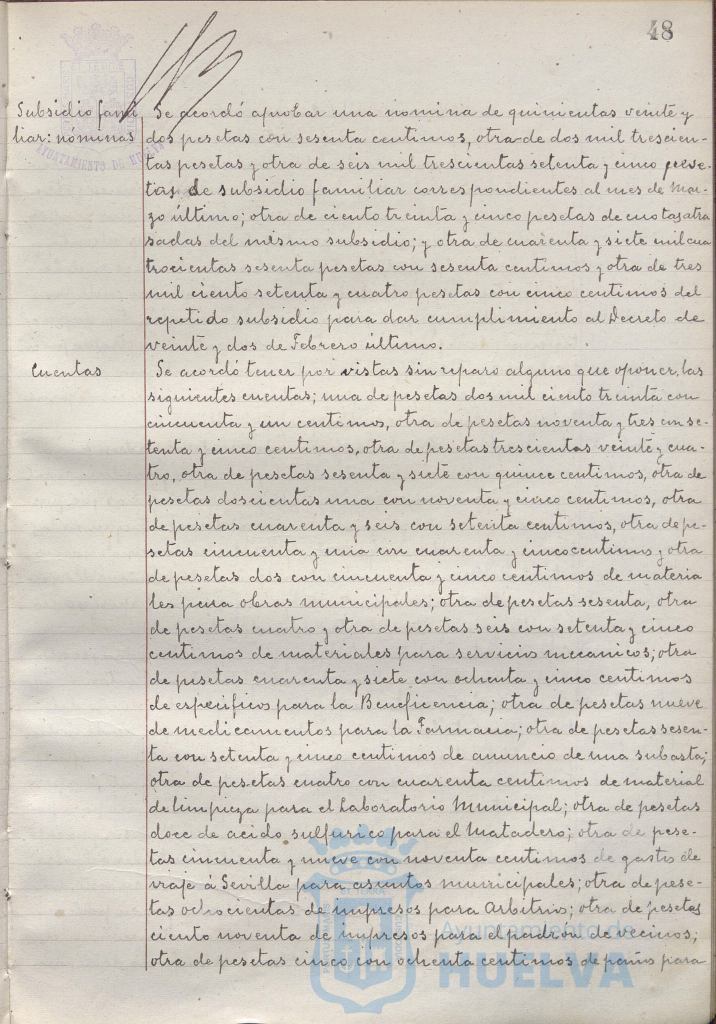 48
Subsidio fami
liar: nóminas
AYUNTAMIENTO DE HUELVA
Se acordó aprobar una nomina de quinientas veinte y
dos pesetas con sesenta centimos, otra de dos mil trescien-
tas pesetas y otra de seis mil trescientas setenta y cinco pese-
tas de subsidio familiar correspondientes al mes de Mar-
zo último; otra de ciento treinta y cinco pesetas de cuotas atra
sadas del mismo subsidio; y otra de cuarenta y siete mil cua
trocientas sesenta pesetas con sesenta centimos y otra de tres
mil ciento setenta y cuatro pesetas con cinco centimos del
repetido subsidio para dar cumplimiento al Decreto de
veinte y dos de Febrero último.
Cuentas
Se acordó tener por vistas sin reparo alguno que oponer, las
siguientes cuentas; una de pesetas dos mil ciento treinta con
cincuenta y un centimos, otra de pesetas noventa y tres con se-
tenta y cinco centimos, otra de pesetas trescientas veinte y cua-
tro, otra de pesetas sesenta y siete con quince centimos, otra de
pesetas doscientas una con noventa y cinco centimos, otra
de pesetas cuarenta y seis con setenta centimos, otra de pe-
setas cincuenta y una con cuarenta y cinco centimos y otra
de pesetas dos con cincuenta y cinco centimos de materia
les para obras municipales; otra de pesetas sesenta, otra
de pesetas cuatro y otra de pesetas seis con setenta y cinco
centimos de materiales para servicios mecanicos; otra
de pesetas cuarenta y siete con ochenta y cinco centimos
de especificos para la Beneficencia; otra de pesetas nueve
de medicamentos para la Farmacia; otra de pesetas sesen-
ta con setenta y cinco centimos de anuncio de una subasta;
otra de pesetas cuatro con cuarenta centimos de material
de limpieza para el Laboratorio Municipal; otra de pesetas
doce de acido sulfurico para el Matadero; otra de pese-
tas cincuenta y nueve con noventa centimos de gastos de
viaje á Sevilla para asuntos municipales; otra de pese-
tas ochocientas de impresos para Arbitrios; otra de pesetas
ciento noventa de impresos para el padron de vecinos;
otra de pesetas cinco con ochenta centimos de paños para
Ayuntamiento de
HUELVA